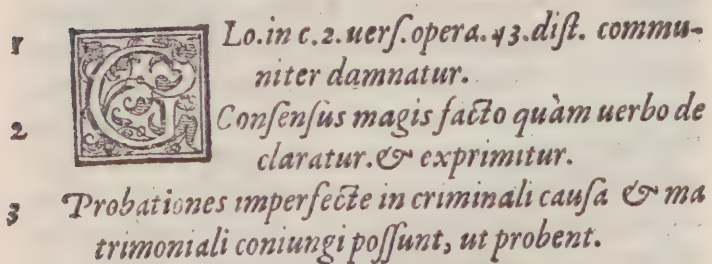 1 GLo.in c.2.uerſ.opera.43.diſt. commu-
niter damnatur.
2 Conſenſus magis facto quàm uerbo de
claratur.& exprimitur.
3 Probationes imperfecte in criminali cauſa & ma
trimoniali coniungi poſſunt, ut probent.